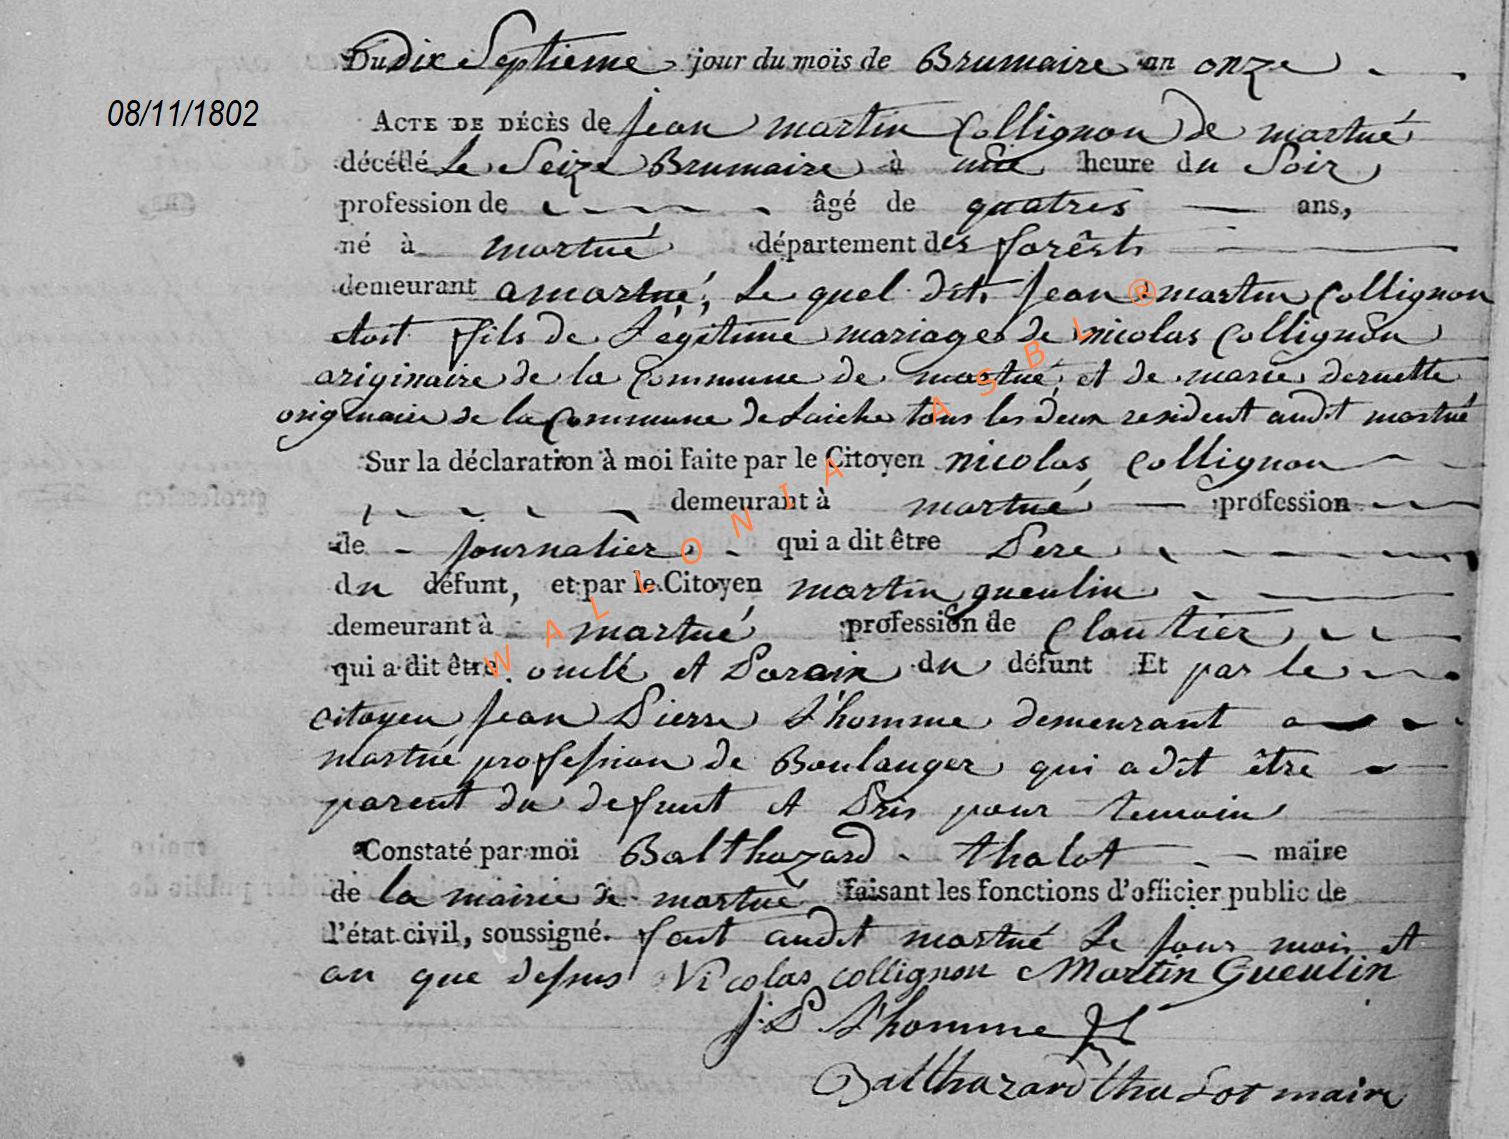 Du dix Septieme jour du mois de Brumaire an onze
08/11/1802
ACTE DE DÉCÈS de jean martin Collignon de martué
décédé Le Seize Brumaire à une heure du Soir
profession de âgé de quatres ans,
né à martué département des forêsts
demeurant a martué, Le quel dit, jean martin Collignon
etoit fils de Légitime mariage de nicolas Collignon
originaire de la Commune de martué et de marie dernette
originaire de la Commune de Laiche tous les deux resident audit martué
Sur la déclaration à moi faite par le Citoyen nicolas Collignon
demeurant à martué profession
de journalier qui a dit être Pere
du défunt, et par le Citoyen martin gueulin
demeurant à martué profession de Cloutier
qui a dit être oncle et Parain du défunt Et par le
citoyen jean Pierre L'homme demeurant a
martué profession de Boulanger qui a dit être
parent du defunt et Pris pour temoin
Constaté par moi Balthazard thalot maire
de la mairie de martué faisant les fonctions d'officier public de
l'état civil, soussigné. fait audit martué Le jour mois et
an que dessus Nicolas collignon Martin Gueulin
J. P. L'homme
Balthazard thalot maire
WALLONIA ASBL ®